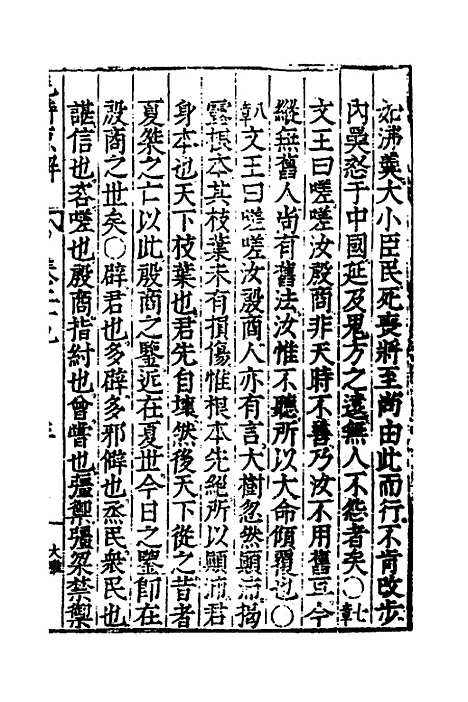 如沸羹大小臣民死喪將至尚由此而行不肯改步
內奰怒于中國延及鬼方之遠無人不怨者矣〇七章
文王曰嗟嗟汝殷商非天時不善乃汝不用舊耳今
縱無舊人尚有舊法汝惟不聽所以大命傾覆也〇
八章文王曰嗟嗟汝殷商人亦有言大樹忽然顚沛揭
露根本其枝葉未有損傷惟根本先絕所以顚沛君
身本也天下枝葉也君先自壞然後天下從之昔者
夏桀之亡以此殷商之鑒近在夏世今日之鑒卽在
殷商之世矣〇辟君也多辟多邪僻也烝民衆民也
諶信也咨嗟也殷商指紂也曾嘗也彊禦彊梁禁禦
大雅